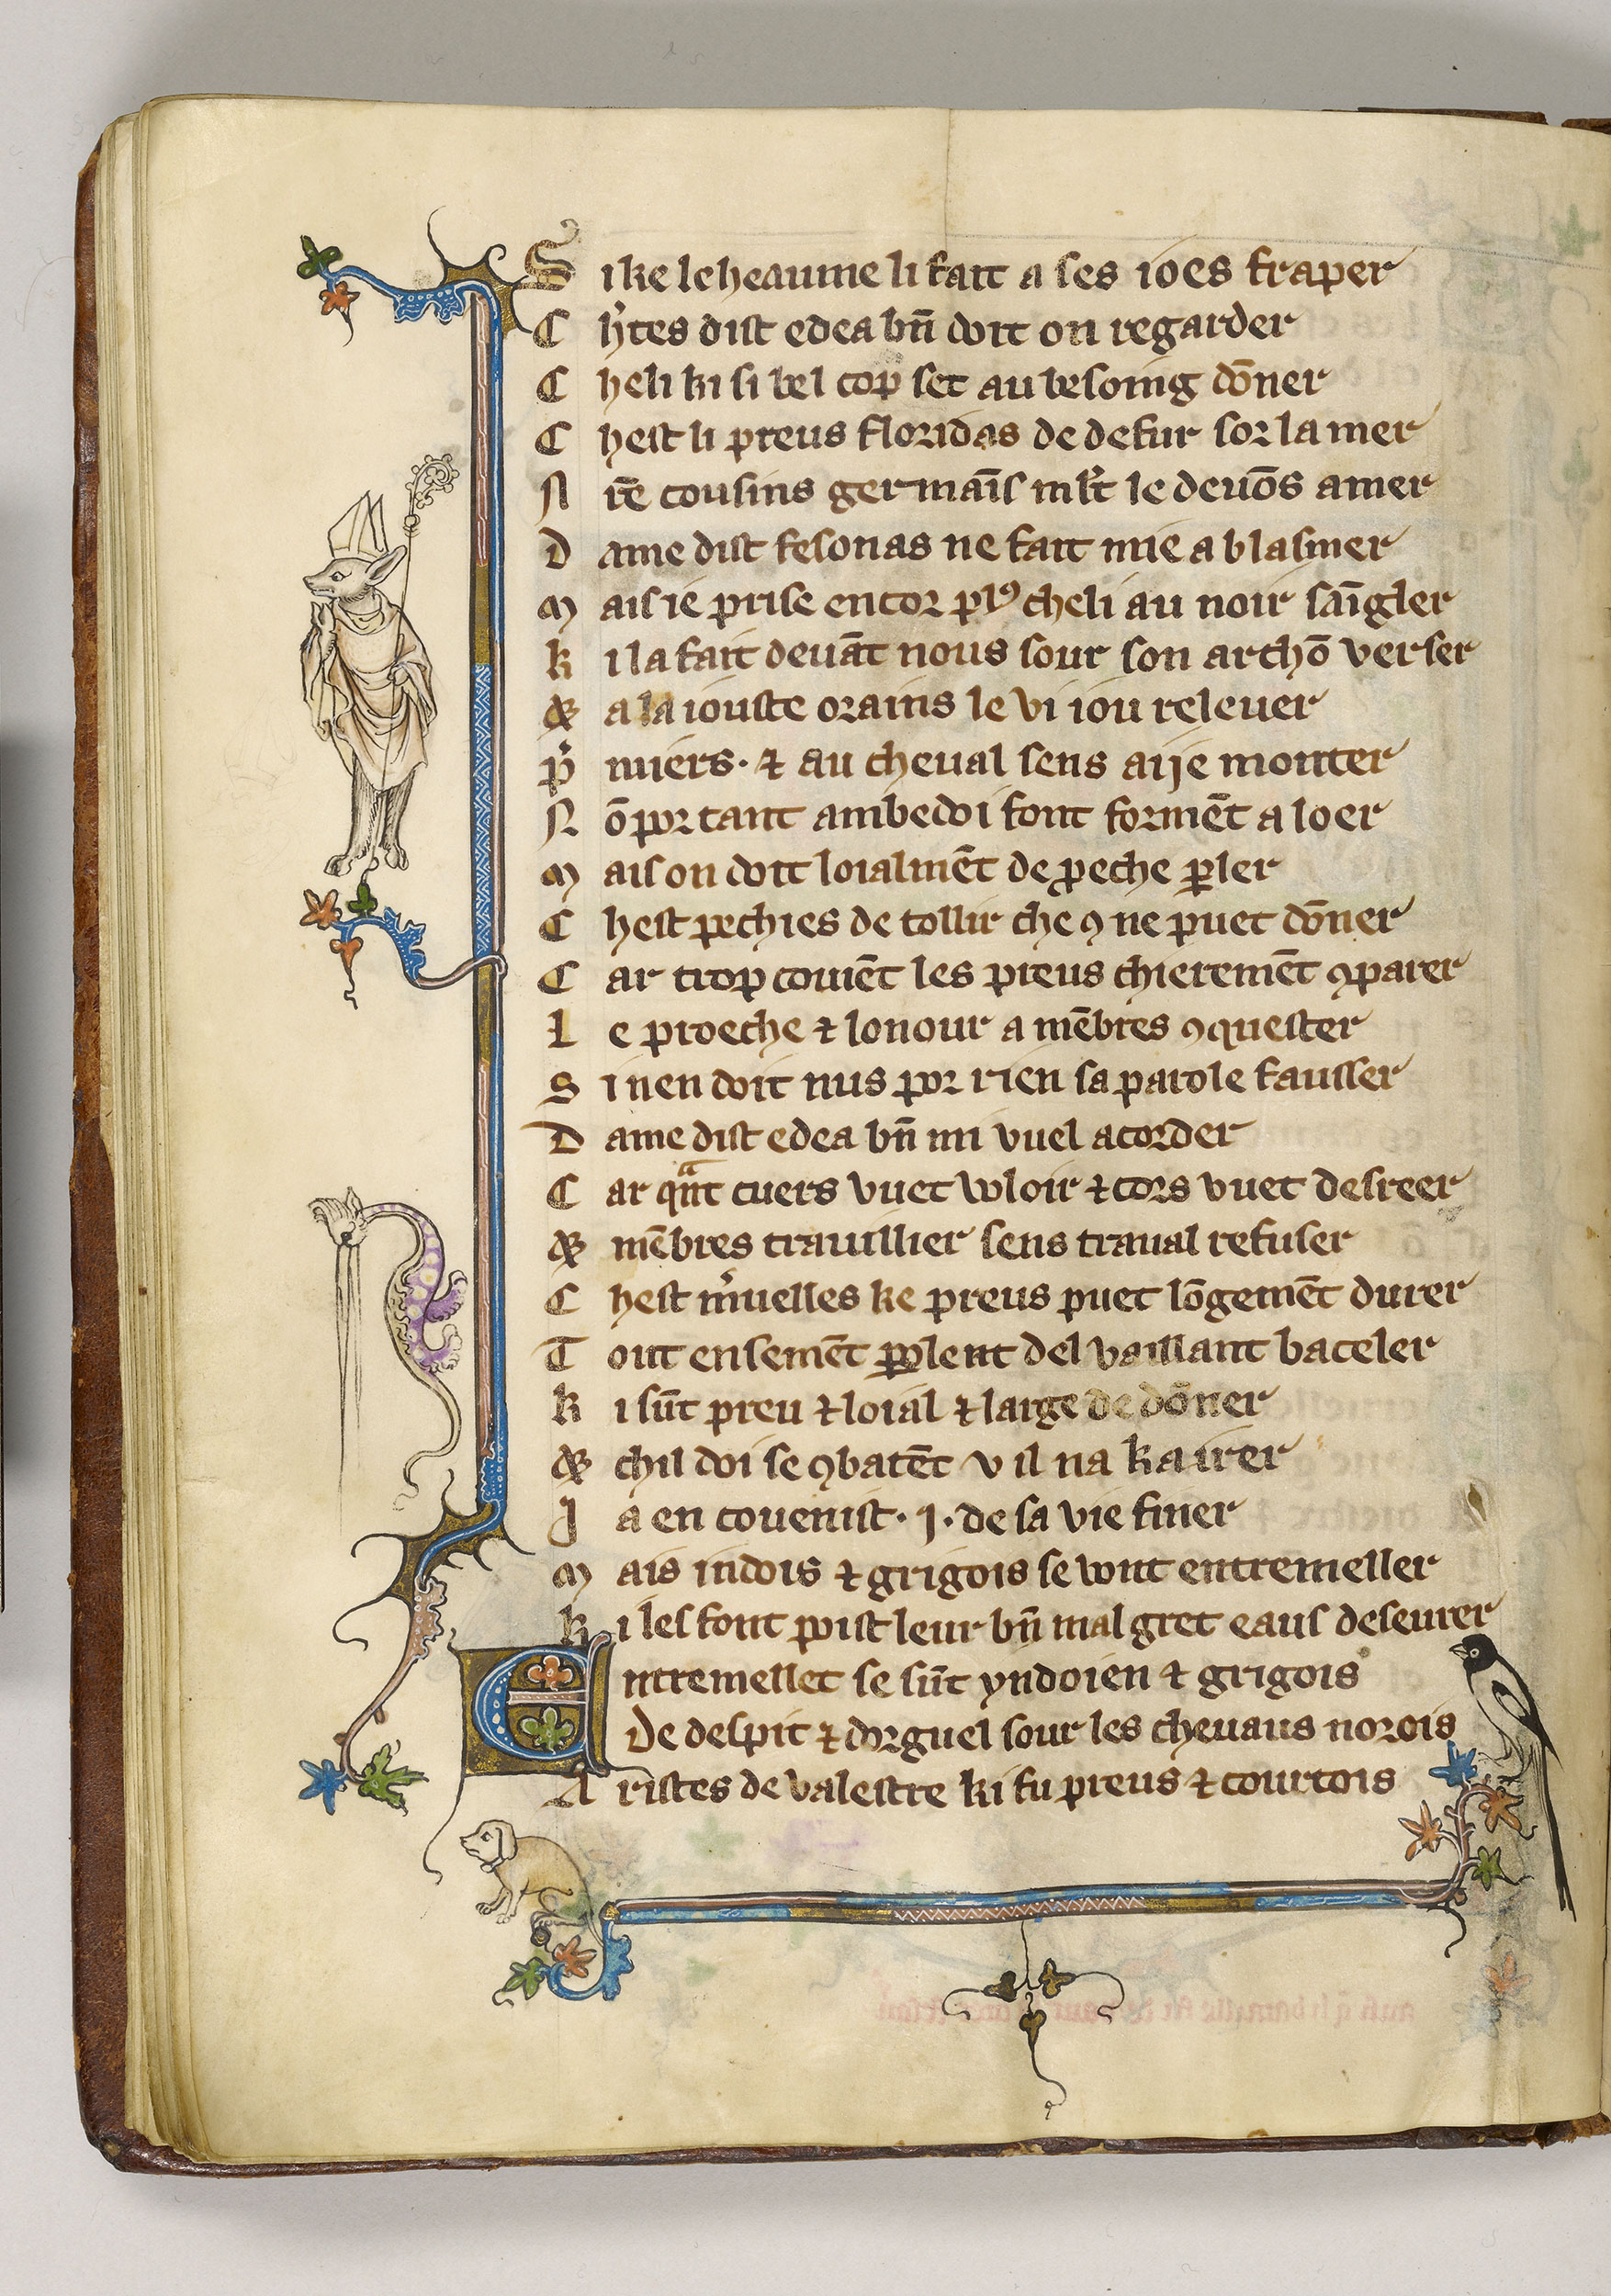 S i ke le heaume li fait a ses ioes fraper
C h'tes dist edea bn̄ doit on regarder
C heli ki si bel cop set au besoing dōner
C hest li preus floridas de defur sor la mer
N r̄e cousins germaīs mlt̄ le deuōs amer
D ame dist fesonas ne fait mie a blasmer
M ais ie prise encor plꝰ cheli au noir sāgler
K il a fait deuāt nous sour son archō verser
Et a la iouste orains le vi iou releuer
P'miers · ⁊ au cheual sens aije monter
N ō por tant ambedoi font formēt a loer
M ais on doit loialmēt de ꝓeche ꝑler
C hest pechies de tollir che ꝯ ne puet dōner
C ar trop couiēt les preus chieremēt ꝯparer
L e proeche ⁊ lonour a mēbres ꝯquester
S i nen doit nus por rien sa parole fausser
D ame dist edea bn̄ mi vuel acorder
C ar qᵃnt cuers vuet voloir ⁊ cors vuet desreer
Et mēbres trauillier sens traual refuser
C hest m'uelles ke preus puet lōgemēt durer
T out ensemēt ꝑlent del vaillant baceler
K i sūt preu ⁊ loial ⁊ large de dōner
Et chil doi se ꝯbatēt v il na k airer
J a en couenist · j · de sa vie finer
M ais indois ⁊ grigois se vont entremeller
K i les font poist leur bn̄ mal gret eaus deseurer
E ntremellet se sūt yndoien ⁊ grigois
De despit ⁊ dorguel sour les cheuaus norois
A ristes de valestre ki fu preus ⁊ courtois